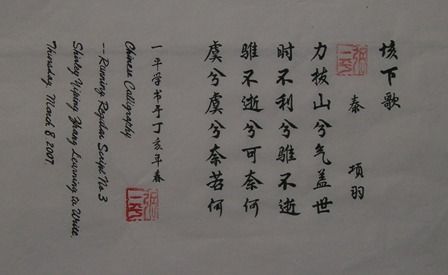 垓下歌
秦 项羽
力拔山兮气盖世
时不利兮骓不逝
骓不逝兮可奈何
虞兮虞兮奈若何
一平学书于丁亥年春
Chinese Calligraphy
-- Running Regular Script No 3
Shirley Yiping Zhang Learning to Write
Thursday, March 8, 2007.